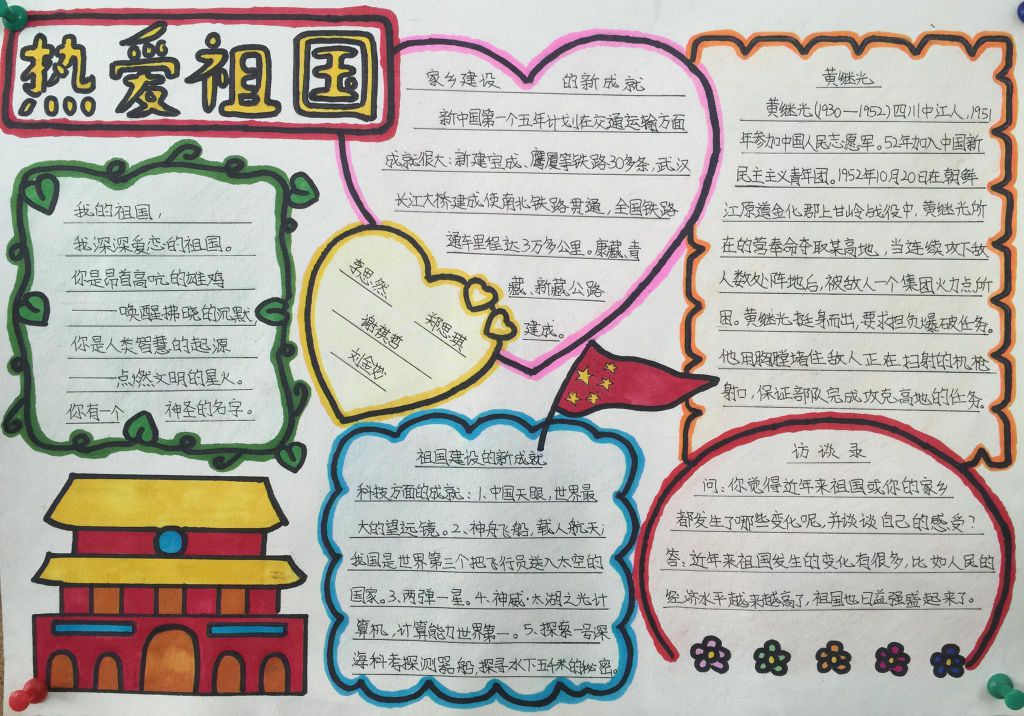 热爱祖国
我的祖国，
我深深爱恋的祖国。
你是昂首高吭的雄鸡
——唤醒拂晓的沉默
你是人类智慧的起源
——点燃文明的星火。
你有一个 神圣的名字。
家乡建设 的新成就
新中国第一个五年计划在交通运输方面
成就很大：新建宝成、鹰厦等铁路30多条，武汉
长江大桥建成使南北铁路贯通，全国铁路
通车里程达3万多公里。康藏、青
藏、新藏公路
建成。
李思然
谢祺哲
郑思琪
刘金妙
祖国建设的新成就
科技方面的成就：1、中国天眼，世界最
大的望远镜。2、神舟飞船，载人航天；
我国是世界第三个把飞行员送入太空的
国家。3、两弹一星。4、神威·太湖之光计
算机，计算能力世界第一。5、探索一号深
海科考探测器船，探寻水下五千米的秘密。
黄继光
黄继光(1930—1952)四川中江人，1951
年参加中国人民志愿军。52年加入中国新
民主主义青年团。1952年10月20日在朝鲜
江原道金化郡上甘岭战役中，黄继光所
在的营奉命夺取某高地，当连续攻下敌
人数处阵地后，被敌人一个集团火力点所
困。黄继光挺身而出，要求担负爆破任务。
他用胸膛堵住敌人正在扫射的机枪
射口，保证部队完成攻克高地的任务。
访谈录
问：你觉得近年来祖国或你的家乡
都发生了哪些变化呢，并谈谈自己的感受？
答：近年来祖国发生的变化有很多，比如人民的
经济水平越来越高了，祖国也日益强盛起来了。